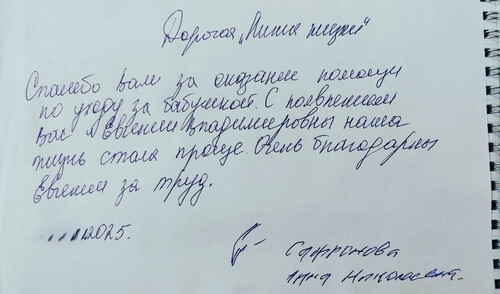 Дорогая „Линия жизни"
Спасибо Вам за оказание помощи
по уходу за бабушкой. С появлением
Вас и Евгении Владимировны наша
жизнь стала проще. Очень благодарны
Евгении за труд.
2025.
Сафронова
Анна Николаевна.